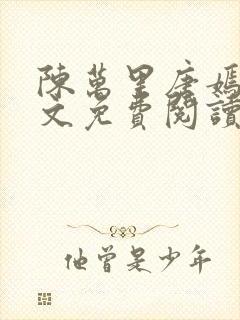 陳萬里唐嫣
文免費閱讀
他曾是少年